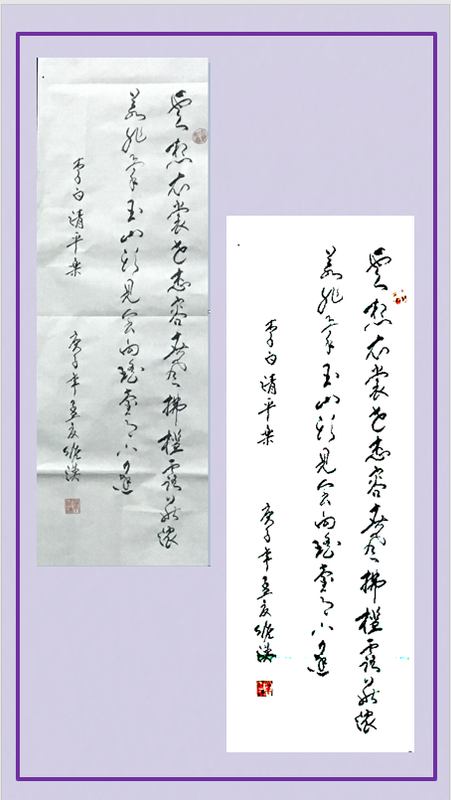 雲想衣裳花想容春風拂檻露華濃
若非羣玉山頭見會向瑤臺月下逢
李白清平樂
庚子年孟夏
雲想衣裳花想容春風拂檻露華濃
若非羣玉山頭見會向瑤臺月下逢
李白清平樂
庚子年孟夏